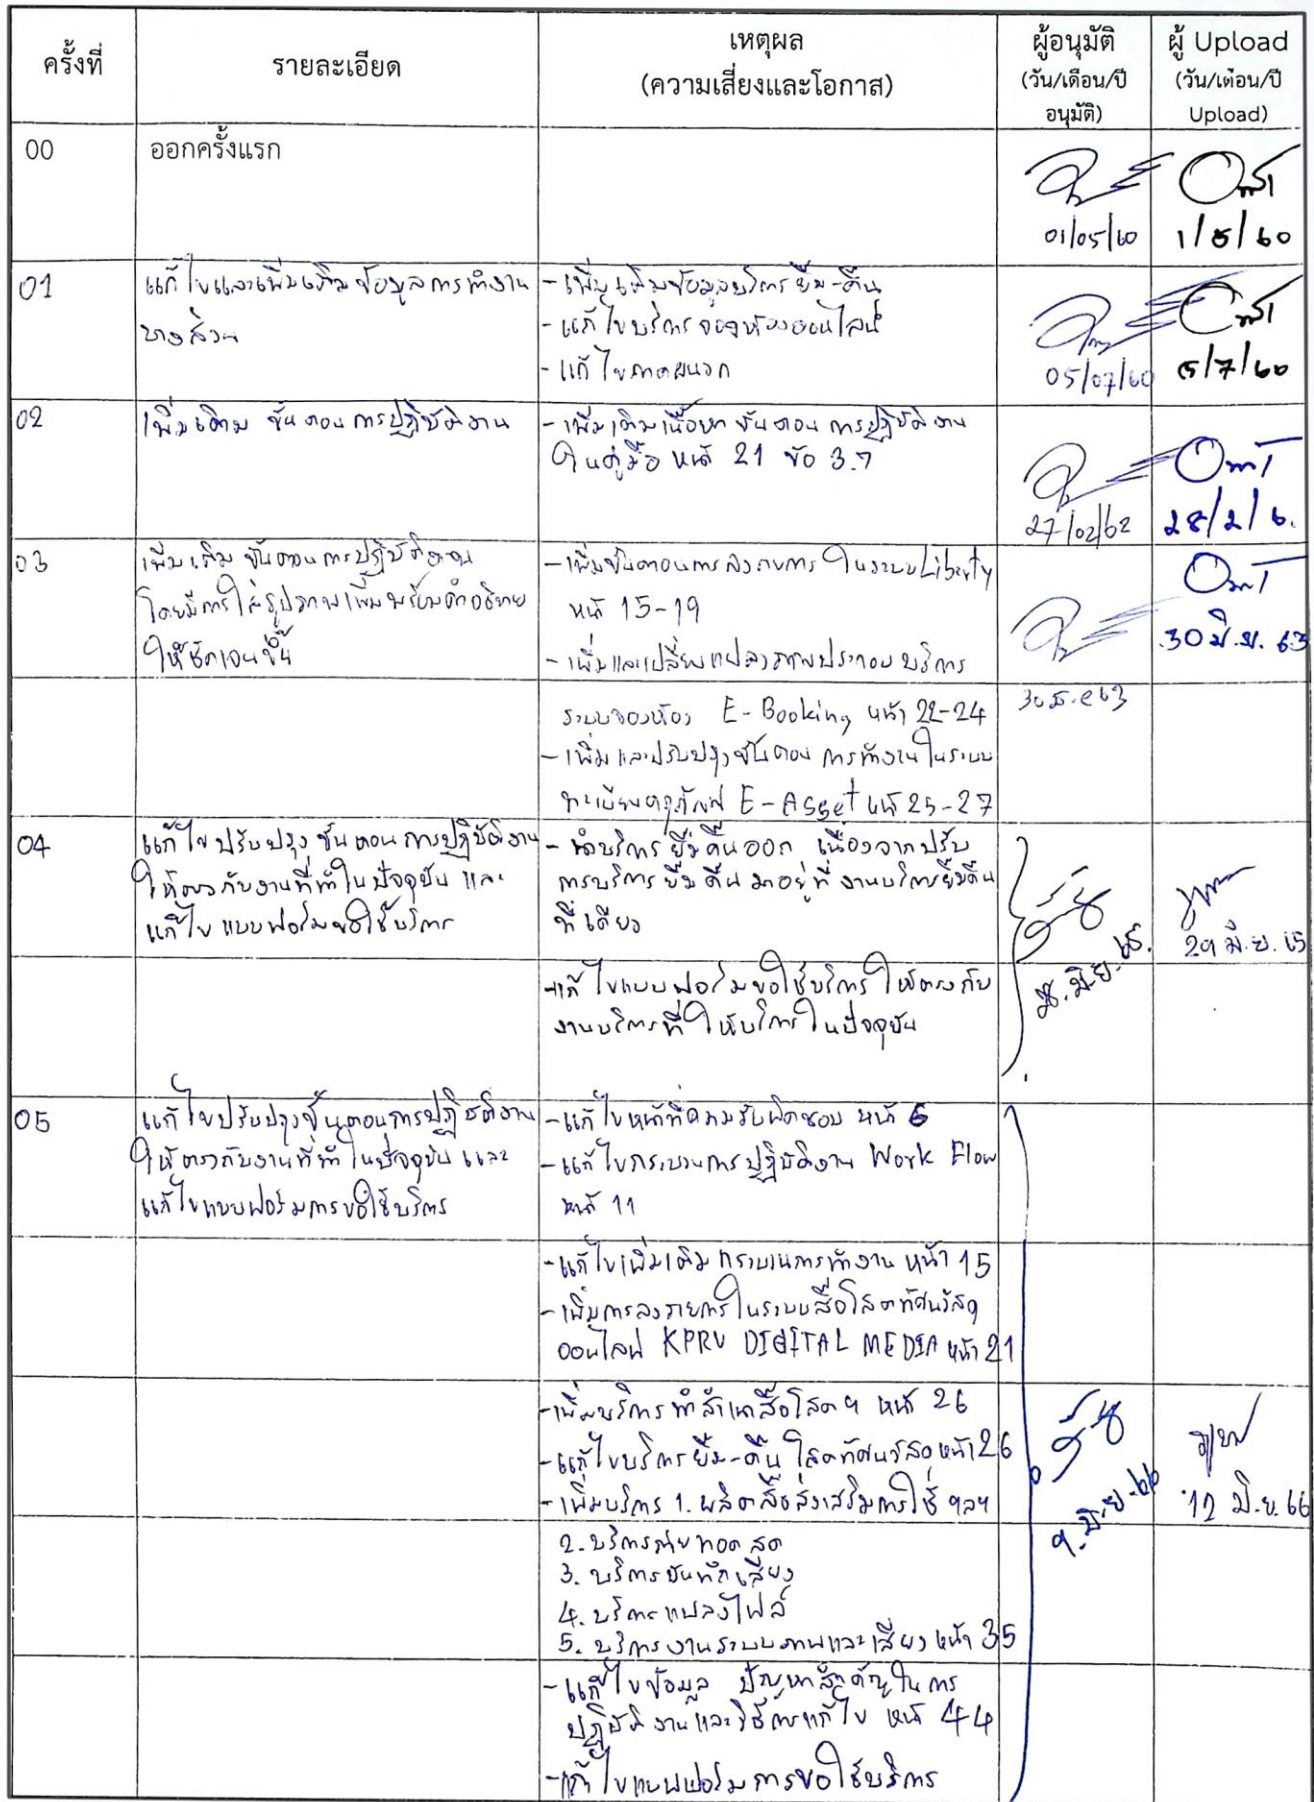 ครั้งที่
รายละเอียด
เหตุผล
(ความเสี่ยงและโอกาส)
ผู้อนุมัติ
(วัน/เดือน/ปี
อนุมัติ)
ผู้ Upload
(วัน/เดือน/ปี
Upload)
00
ออกครั้งแรก
01/05/60
1/5/60
01
แก้ไขและเพิ่มเติมข้อมูลการทำงาน
บางส่วน
- เพิ่มเติมข้อมูลบริการยืม-คืน
- แก้ไขบริการจองห้องออนไลน์
- แก้ไขภาคผนวก
05/07/60
5/7/60
02
เพิ่มเติม ขั้นตอนการปฏิบัติงาน
- เพิ่มเติมเนื้อหา ขั้นตอน การปฏิบัติงาน
ในคู่มือ หน้า 21 ข้อ 3.7
27/02/62
28/2/6.
03
เพิ่มเติม ขั้นตอนการปฏิบัติงาน
โดยมีการใส่รูปภาพเพิ่มพร้อมคำอธิบาย
ให้ชัดเจนขึ้น
- เพิ่มขั้นตอนการลงรายการ ในระบบ Liberty
หน้า 15-19
- เพิ่มและเปลี่ยนแปลงภาพประกอบ บริการ
30 มิ.ย. 63
ระบบจองห้อง E-Booking หน้า 22-24
- เพิ่มและปรับปรุงขั้นตอน การทำงานในระบบ
ทะเบียนครุภัณฑ์ E-Asset หน้า 25-27
04
แก้ไขปรับปรุง ขั้นตอน การปฏิบัติงาน
ให้ตรงกับงานที่ทำในปัจจุบัน และ
แก้ไข แบบฟอร์มขอใช้บริการ
- นำบริการยืมคืนออก เนื่องจากปรับ
การบริการยืมคืนมาอยู่ที่ งานบริการยืมคืน
ที่เดียว
29 มิ.ย. 65
- แก้ไขแบบฟอร์มขอใช้บริการ ให้ตรงกับ
งานบริการที่ให้บริการในปัจจุบัน
05
แก้ไขปรับปรุงขั้นตอนการปฏิบัติงาน
ให้ตรงกับงานที่ทำในปัจจุบัน และ
แก้ไขแบบฟอร์มการขอใช้บริการ
- แก้ไขหน้าที่ความรับผิดชอบ หน้า 6
- แก้ไขกระบวนการปฏิบัติงาน Work Flow
หน้า 11
- แก้ไขเพิ่มเติม กระบวนการทำงาน หน้า 15
- เพิ่มการลงรายการในระบบสื่อโสตทัศนวัสดุ
ออนไลน์ KPRU DIGITAL MEDIA หน้า 21
- เพิ่มบริการทำสำเนาสื่อโสตฯ หน้า 26
- แก้ไขบริการยืม-คืน โสตทัศนวัสดุ หน้า 26
- เพิ่มบริการ 1. ผลิตสื่อส่งเสริมการใช้ ฯลฯ
9. มิ.ย. 66
12 มิ.ย. 66
2. บริการถ่ายทอดสด
3. บริการบันทึกเสียง
4. บริการแปลงไฟล์
5. บริการงานระบบภาพและเสียง หน้า 35
- แก้ไขข้อมูล ปัญหาสำคัญในการ
ปฏิบัติงานและวิธีการแก้ไข หน้า 44
- แก้ไขแบบฟอร์มการขอใช้บริการ